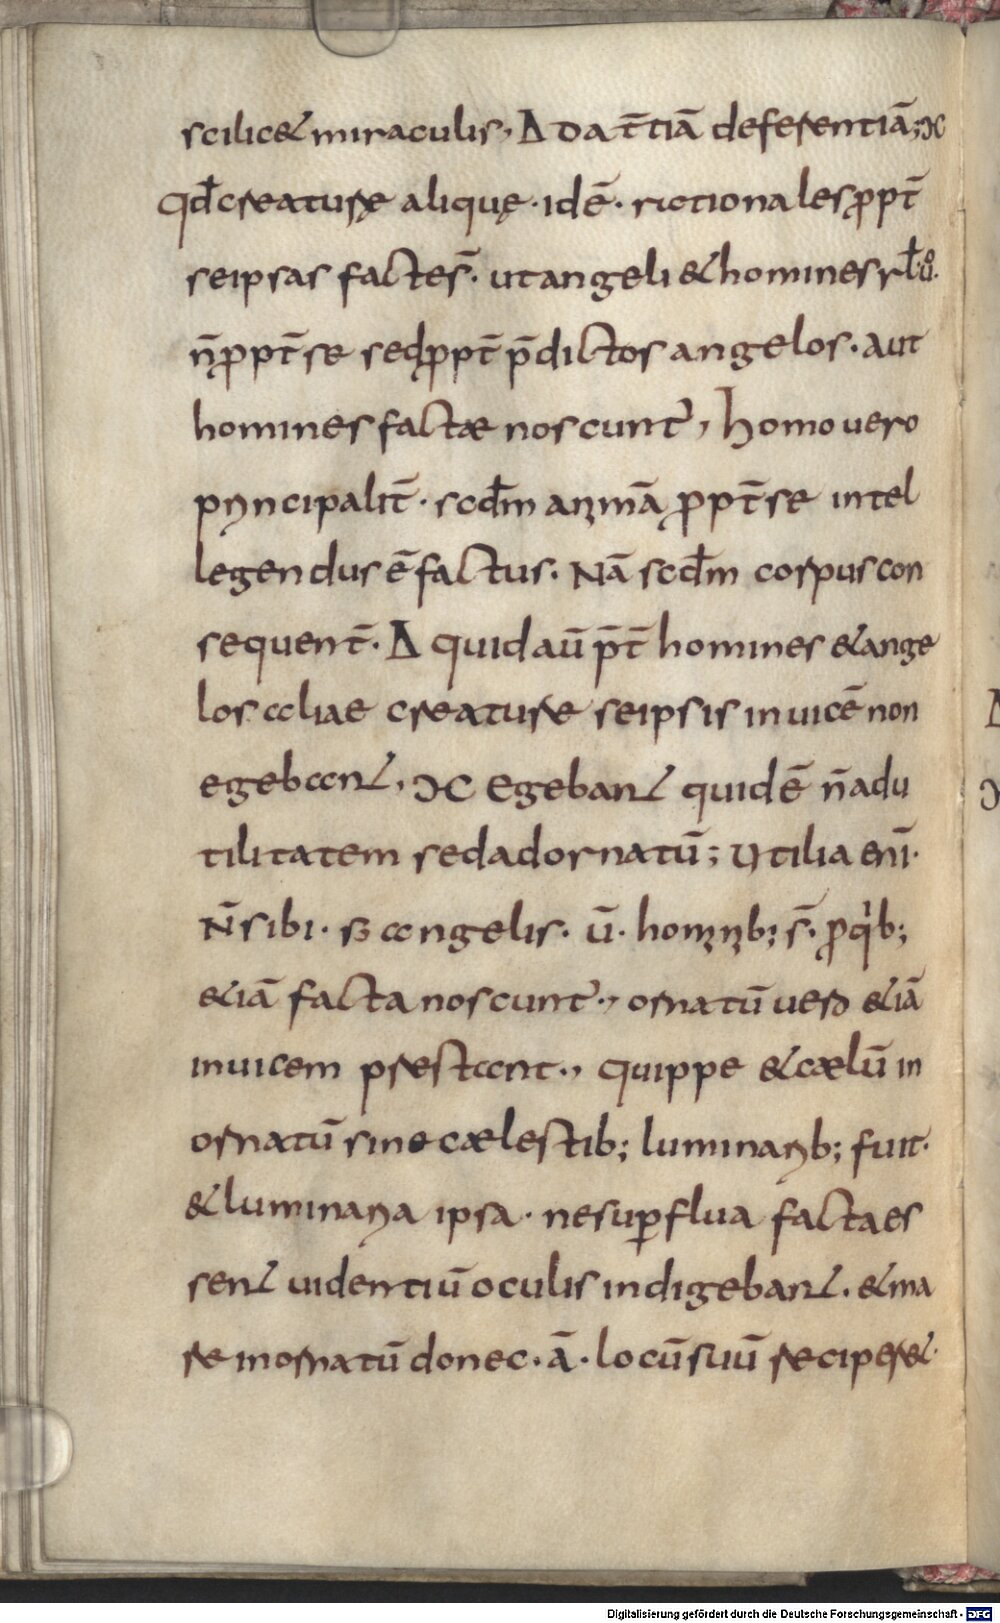 scilic& miraculis, Δ Da t̄tiā deferentiā; ϽC
qđ creaturę alique̜· idē· rationales ꝓpt̄
seipsas factes̄· ut angeli & homines ł ůͦ·
n̄ ꝓpt̄ se sed ꝓpt̄ p̄dictos angelos· aut
homines factæ noscunt̄, homo uero
principalit̄· scđm animā ꝓpt̄ se intel
legendus ē factus· Nā scđm corpus con
sequent̄· Δ quid aū p̄t̄ homines & ange
los aliae creature seipsis inuicē non
egebant, ϽC Egebant quidē n̄ adu
tilitatem sed ad ornatū; Utilia enī·
N̄ sibi· s; angelis· ū· hominib; s̄· ꝓ qib;
&iā facta noscunt̄·, ornatū uero &iā
inuicem prestant·, quippe & cælū in
ornatū sine cælestib; luminarib; fuit·
& luminaria ipsa· ne supꝑflua facta es
sent uidentiū oculis indigebant· & ma
re inornatū donec· ā· locū suū reciper&·
Digitalisierung gefördert durch die Deutsche Forschungsgemeinschaft - DFG